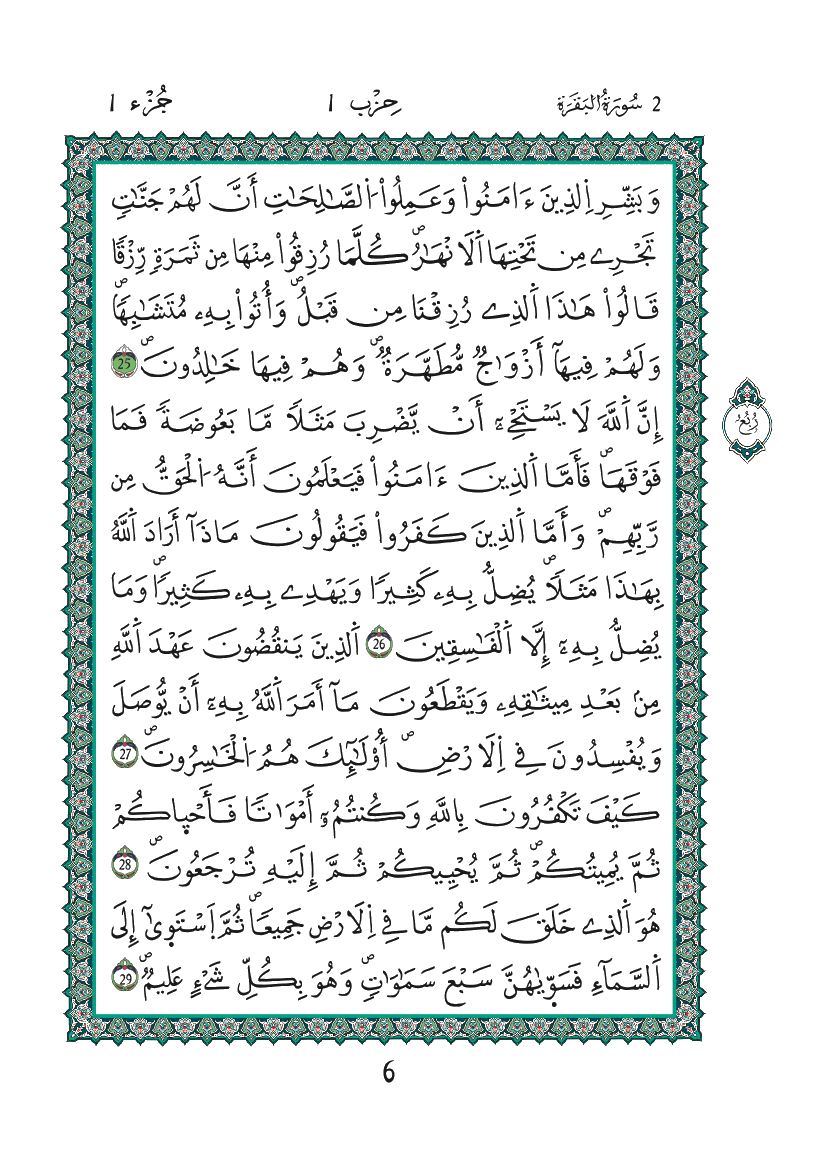 2 سُورَةُ الْبَقَرَة حِزْب ١ جُزْء ١
وَبَشِّرِ اِ۬لذِينَ ءَامَنُواْ وَعَمِلُواْ اُ۬لصَّٰلِحَٰتِ أَنَّ لَهُمْ جَنَّٰتٖ
تَجْرِے مِن تَحْتِهَا اَ۬لَانْهَٰرُۖ كُلَّمَا رُزِقُواْ مِنْهَا مِن ثَمَرَةٖ رِّزْقاٗ
قَالُواْ هَٰذَا اَ۬لذِے رُزِقْنَا مِن قَبْلُۖ وَأُتُواْ بِهِۦ مُتَشَٰبِهاٗۖ
وَلَهُمْ فِيهَآ أَزْوَٰجٞ مُّطَهَّرَةٞۖ وَهُمْ فِيهَا خَٰلِدُونَۖ 25
إِنَّ اَ۬للَّهَ لَا يَسْتَحْيِۦٓ أَنْ يَّضْرِبَ مَثَلاٗ مَّا بَعُوضَةٗ فَمَا
رُبُع
فَوْقَهَاۖ فَأَمَّا اَ۬لذِينَ ءَامَنُواْ فَيَعْلَمُونَ أَنَّهُ اُ۬لْحَقُّ مِن
رَّبِّهِمْۖ وَأَمَّا اَ۬لذِينَ كَفَرُواْ فَيَقُولُونَ مَاذَآ أَرَادَ اَ۬للَّهُ
بِهَٰذَا مَثَلاٗۖ يُضِلُّ بِهِۦ كَثِيراٗ وَيَهْدِے بِهِۦ كَثِيراٗۖ وَمَا
يُضِلُّ بِهِۦٓ إِلَّا اَ۬لْفَٰسِقِينَ 26 اَ۬لذِينَ يَنقُضُونَ عَهْدَ اَ۬للَّهِ
مِنۢ بَعْدِ مِيثَٰقِهِۦ وَيَقْطَعُونَ مَآ أَمَرَ اَ۬للَّهُ بِهِۦٓ أَنْ يُّوصَلَ
وَيُفْسِدُونَ فِے اِ۬لَارْضِۖ أُوْلَٰٓئِكَ هُمُ اُ۬لْخَٰسِرُونَۖ 27
كَيْفَ تَكْفُرُونَ بِاللَّهِ وَكُنتُمُۥٓ أَمْوَٰتاٗ فَأَحْيٰكُمْ
ثُمَّ يُمِيتُكُمْۖ ثُمَّ يُحْيِيكُمْ ثُمَّ إِلَيْهِ تُرْجَعُونَۖ 28
هُوَ اَ۬لذِے خَلَقَ لَكُم مَّا فِے اِ۬لَارْضِ جَمِيعاٗۖ ثُمَّ اَ۪سْتَو۪يٰٓ إِلَى
اَ۬لسَّمَآءِ فَسَوّ۪يٰهُنَّ سَبْعَ سَمَٰوَٰتٖۖ وَهُوَ بِكُلِّ شَےْءٍ عَلِيمٞۖ 29
6